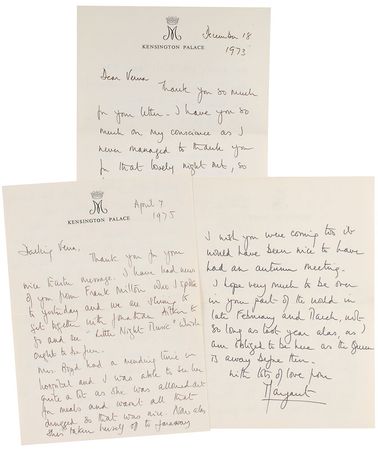 M
KENSINGTON PALACE
December 18
1973
Dear Verna
Thank you so much
for your letter - I have you so
much on my conscience as I
never managed to thank you
for that lovely night out, so
M
KENSINGTON PALACE
April 7.
1975
Darling Verna,
Thank you for your
nice Easter message. I have had news
of you from Frank Milton who I spoke
to yesterday and we are striving to
get together with Jonathan Aitken to
go and see "Little Night Music" which
ought to be fun.
Mrs Boyd had a mending time in
hospital and I was able to be her
quite a lot as she was allowed out
for meals and wasn't all that
damaged so that was nice. Now alas
she's taken herself of to faraway
I wish you were coming too it
would have been nice to have
had an autumn meeting.
I hope very much to be over
in your part of the world in
late February and March, not
so long as last year alas, as I
am obliged to be here as the Queen
is away before then.
with lots of love from
Margaret